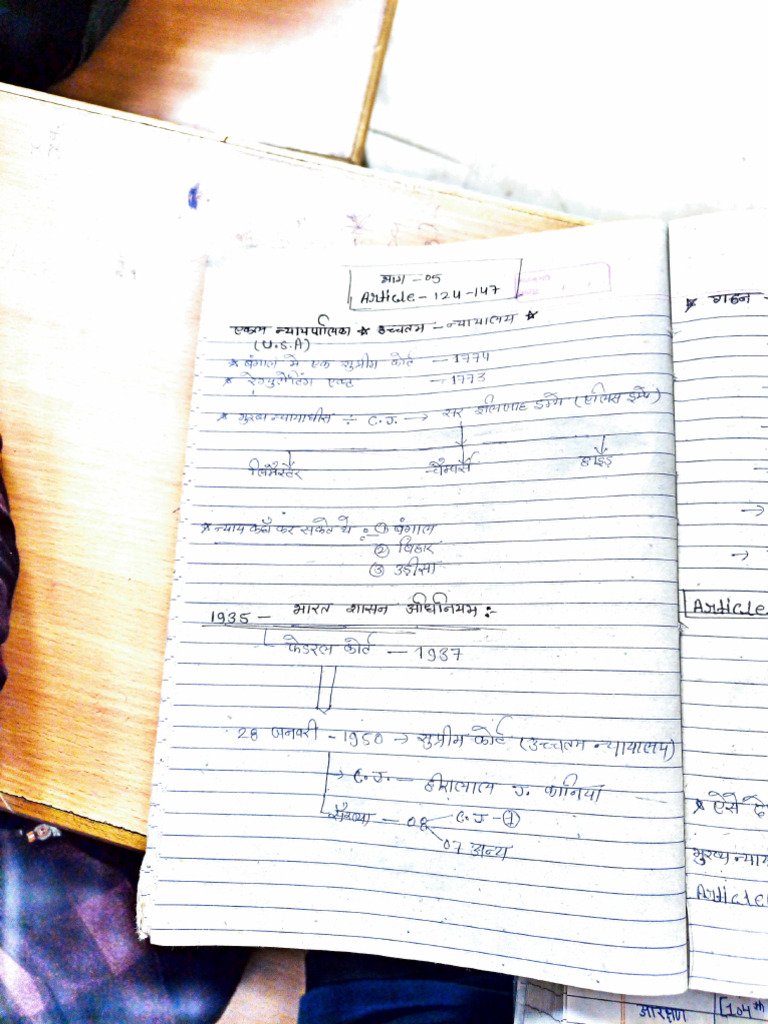 भाग - 05
Article - 124-147
एकल न्यायपालिका ★ उच्चतम - न्यायालय ★
(U.S.A)
★ बंगाल में एक सुप्रीम कोर्ट - 1774
★ रेग्युलेटिंग एक्ट - 1773
★ मुख्य न्यायाधीश ÷ C.J. → सर इलिजाह इम्पे (एलिस इम्पे)
लिमैस्टर चैम्बर्स हाइड
★ न्याय कहाँ कर सकते थे :- ① बंगाल
② बिहार
③ उड़ीसा
1935 - भारत शासन अधिनियम :-
फेडरल कोर्ट - 1937
28 जनवरी - 1950 → सुप्रीम कोर्ट (उच्चतम न्यायालय)
→ C.J. - हीरालाल J. कानियां
संख्या - 08 C.J - ①
07 अन्य
★ गठन -
→
→
Article
★ ऐसे
मुख्य न्याय
Article
आरक्षण 104th